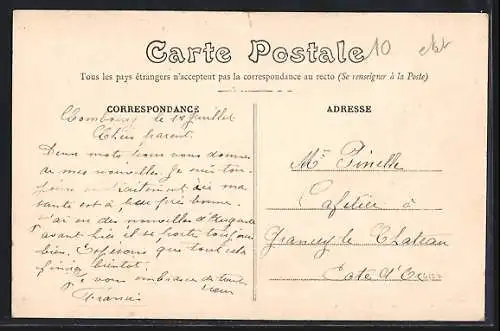 Carte Postale
10
Tous les pays étrangers n'acceptent pas la correspondance au recto (Se renseigner à la Poste)
CORRESPONDANCE
le 18 Juillet
Chers parent.
Deux mots pour vous donner
de mes nouvelles je suis tou-
en traitement
santé est à peu près bonne.
j'ai eu des nouvelles d'
avant hier il se porte toujours
bien. Espérons que tout cela
finira bientôt.
vous embrasse de tout
cœur
Francis
ADRESSE
Mr Pinelle
Cafetier à
Grancey le Chateau
Cote d'Or